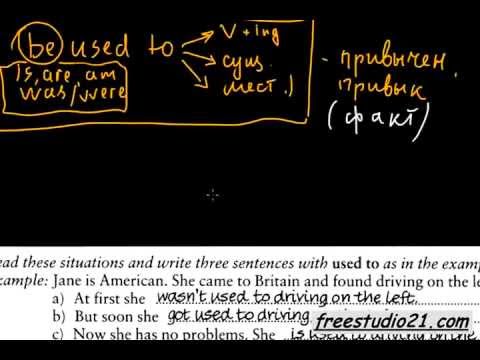 be used to
V + ing
is, are, am
сущ.
was/were
мест.)
- привычен,
привык
(факт)
ead these situations and write three sentences with used to as in the examp
xample: Jane is American. She came to Britain and found driving on the le
a) At first she wasn't used to driving on the left.
b) But soon she got used to driving
freestudio21.com
c) Now she has no problems. She is used to driving on the